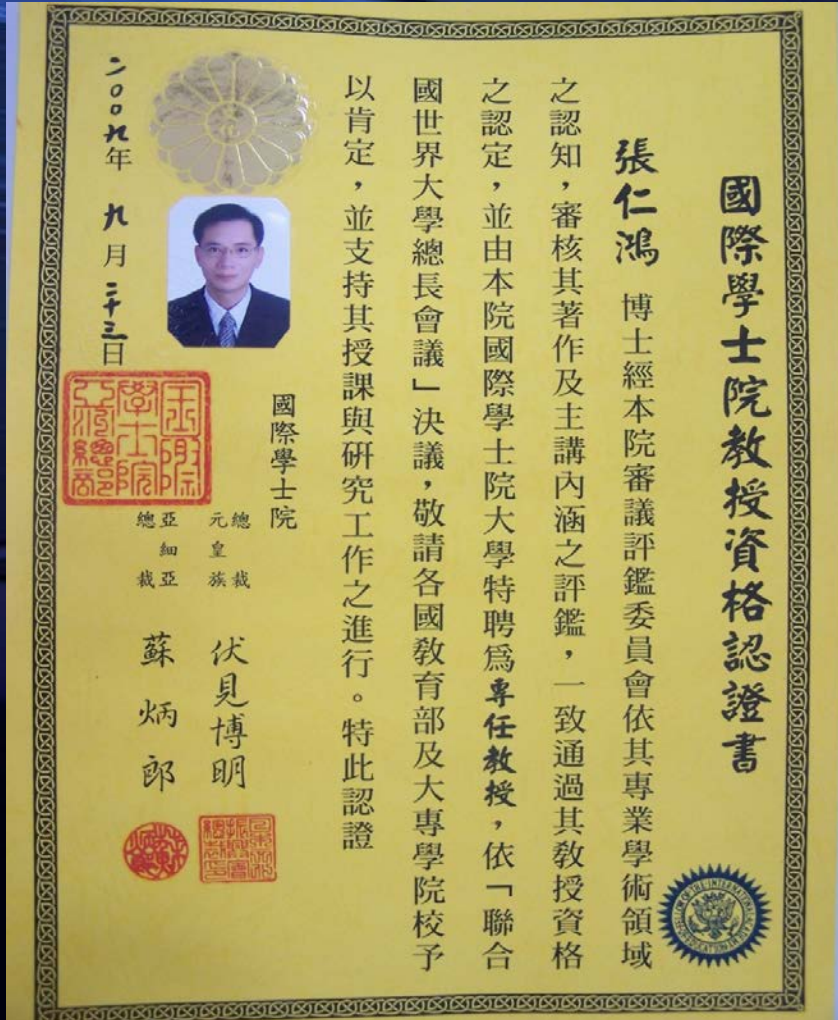 國際學士院教授資格認證書
張仁鴻 博士經本院審議評鑑委員會依其專業學術領域
之認知，審核其著作及主講內涵之評鑑，一致通過其教授資格
之認定，並由本院國際學士院大學特聘爲專任教授，依「聯合
國世界大學總長會議」決議，敬請各國教育部及大專學院校予
以肯定，並支持其授課與研究工作之進行。特此認證
國際學士院
總裁 元皇族 伏見博明
亞細亞總裁 蘇炳郎
國際學士院亞洲總部
二〇〇九年九月二十三日